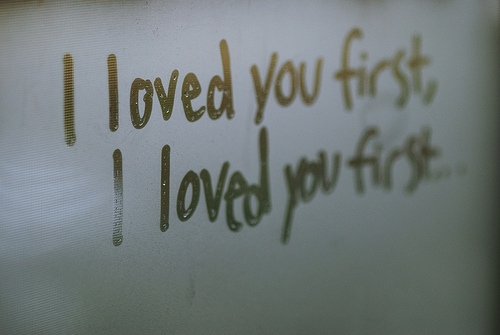 I loved you first,
I loved you first...